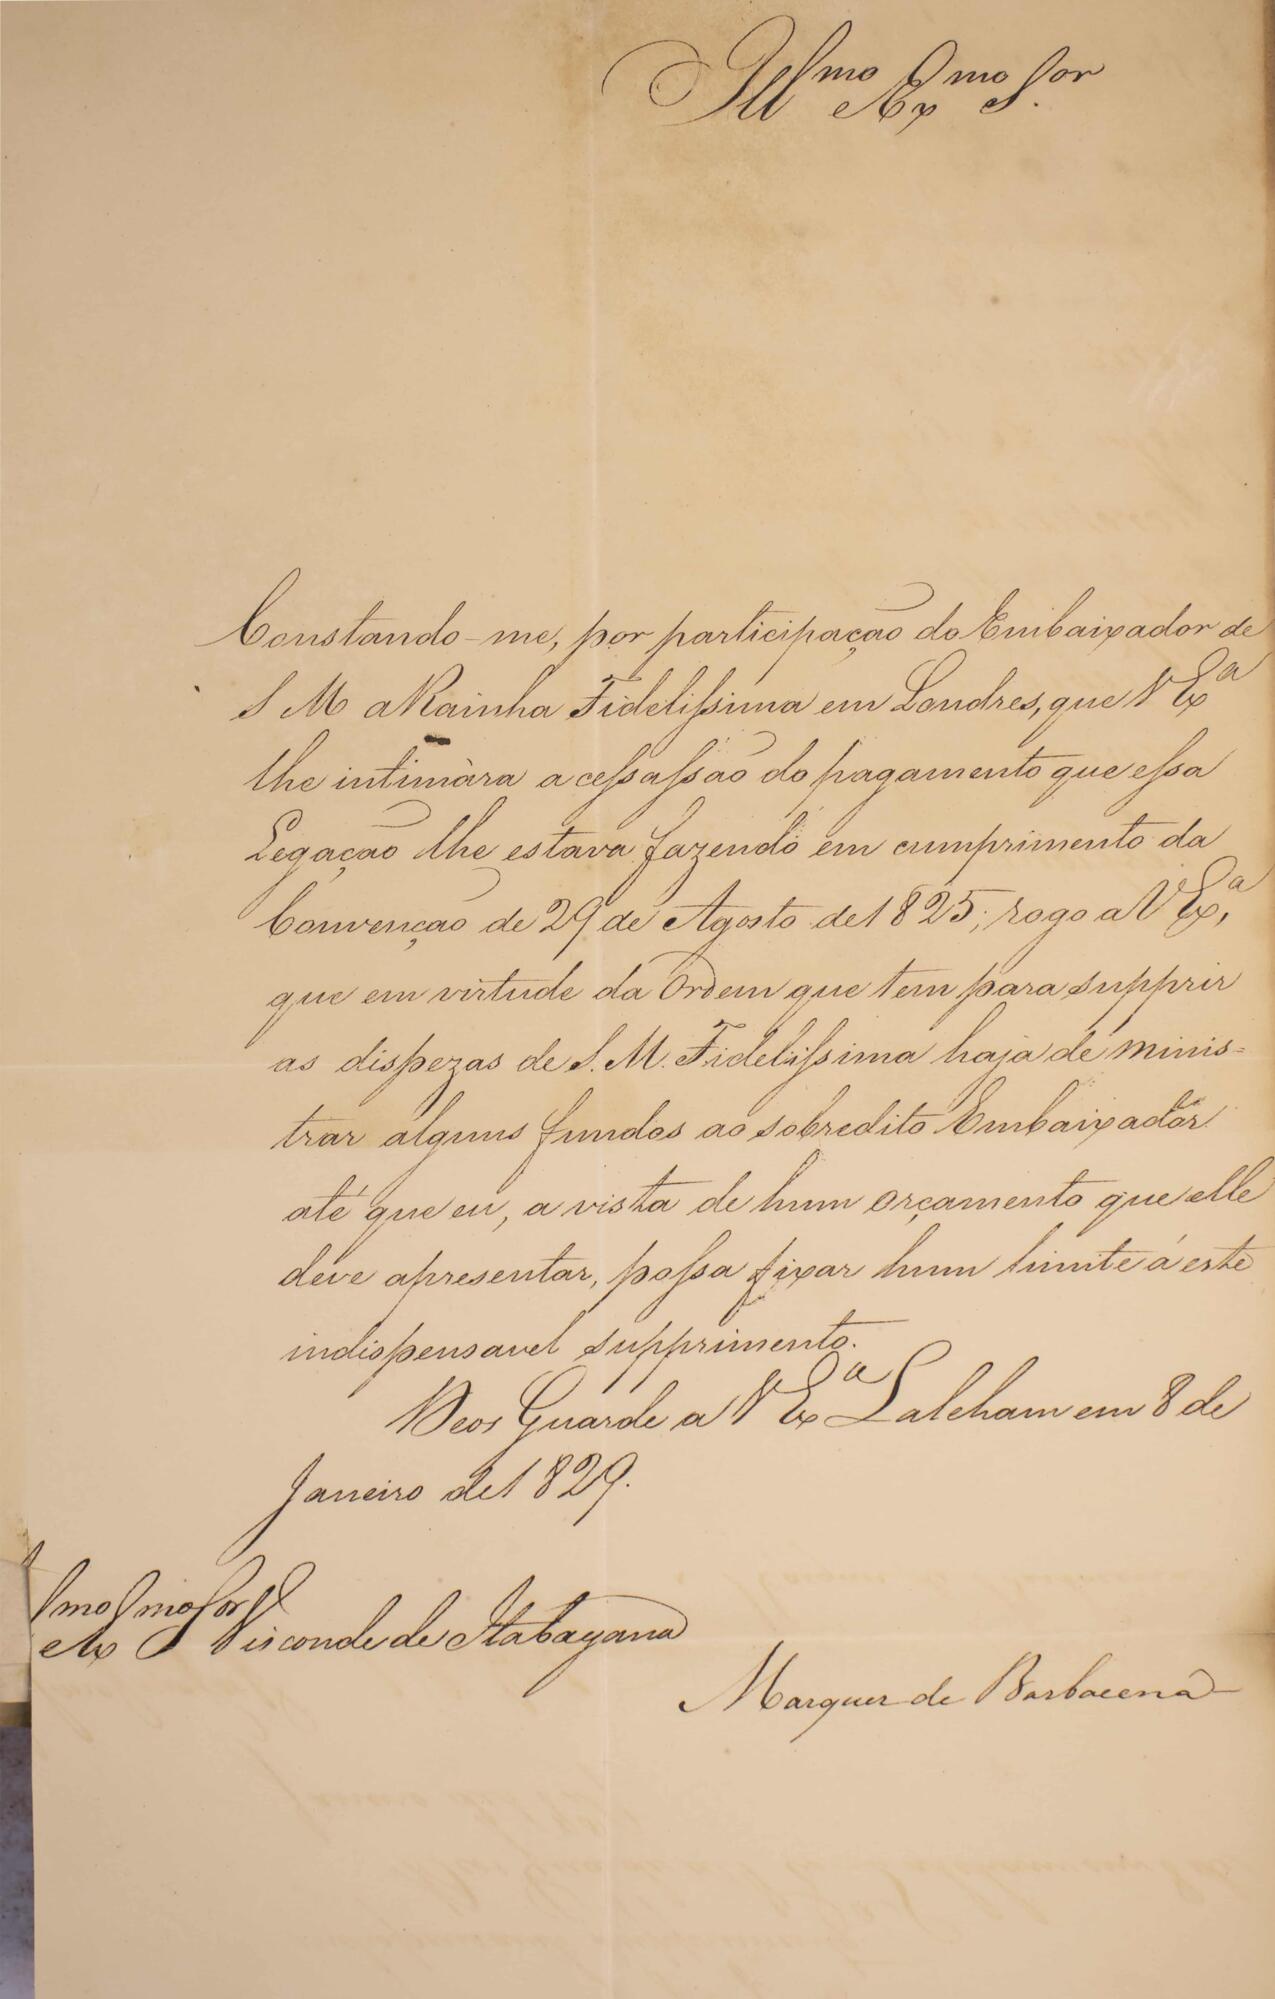 Illmo Exmo Sor.
Constando-me, por participação do Embaixador de
S M a Rainha Fidelissima em Londres, que V Exa
lhe intimàra a cessassão do pagamento que essa
Legação lhe estava fazendo em cumprimento da
Convenção de 29 de Agosto de 1825; rogo a V Exa,
que em virtude da Ordem que tem para supprir
as dispezas de S. M. Fidelissima haja de minis=
trar alguns fundos ao sobredito Embaixador
até que eu, a vista de hum orçamento que elle
deve apresentar, possa fixar hum limite á este
indispensavel supprimento.
Deos Guarde a V Exa Laleham em 8 de
Janeiro de 1829.
Exmo Sor Visconde de Itabayana
Marquez de Barbacena